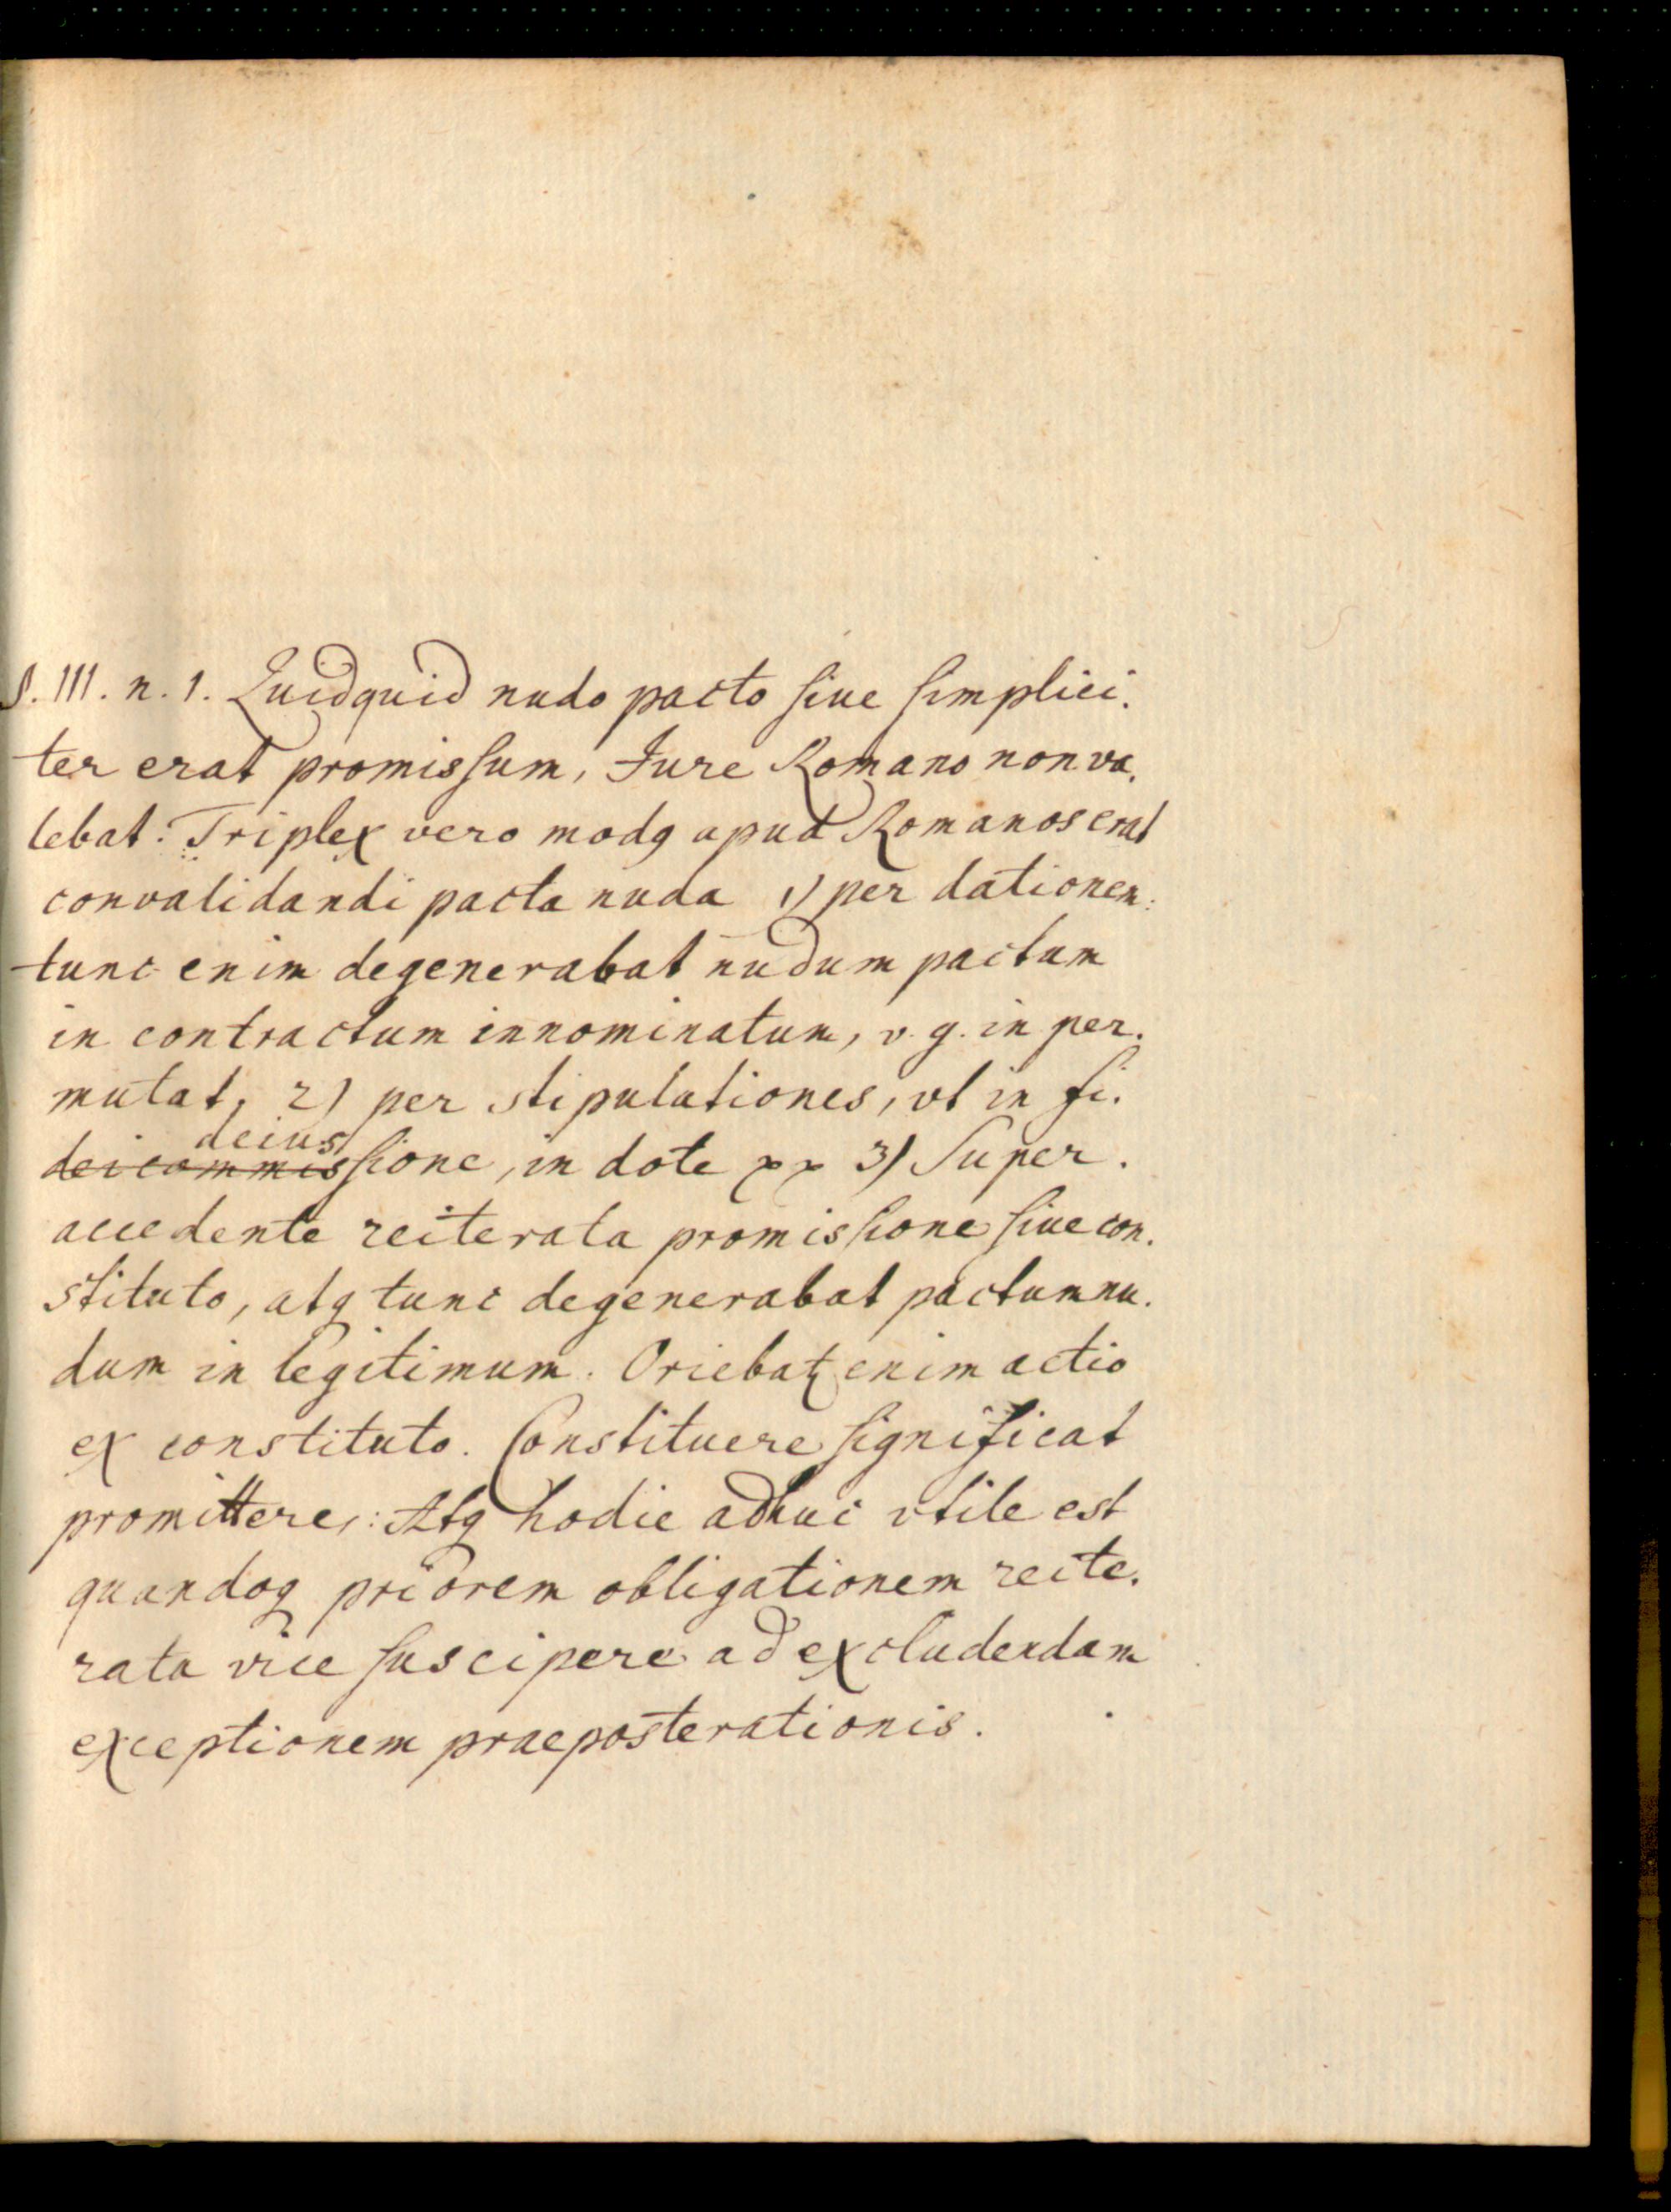 §. III. n. 1. Quidquid nudo pacto ſiue ſimplici.
ter erat promisſum, Jure Romano non va.
lebat: Triplex vero modq apud Romanos erat
convalidandi pacta nuda 1) per dationem:
tunc enim degenerabat nudum pactum
in contractum innominatum, v. g. in per.
mutat, 2) per stipulationes, vt in fi.
deius
deicommisſione, in dote pp 3) Super.
accedente reiterata promisſione ſiue con.
stituto, atq tunc degenerabat pactum nu.
dum in legitimum. Oriebatr enim actio
ex constituto. Constituere ſignificat
promittere,: Atq hodie adhuc vtile est
quandoq priorem obligationem reite.
rata vice ſuscipere ad excludendam
exceptionem praeposterationis.